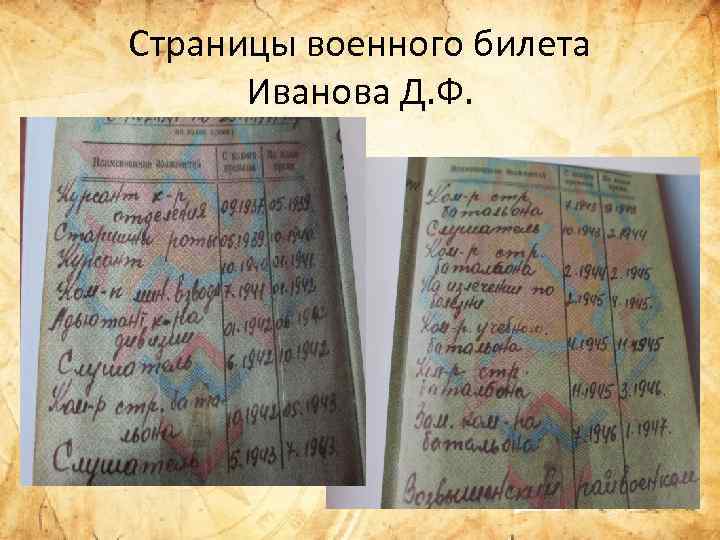 Страницы военного билета
Иванова Д.Ф.
по какое время)
Наименование должностей С какого времени По какое время
Курсант к-р
отделения 09.1937 05.1939
Старшины роты 05.1939 10.1940
Курсант 10.1940 01.1941
Ком-р мин. взвода 7.1941 01.1942
Адъютант к-ра
дивизии 01.1942 06.1942
Слушатель 6.1942 10.1942
Ком-р стр. бата-
льона 10.1942 05.1943
Слушатель 5.1943 7.1943
Наименование должностей С какого времени По какое время
Ком-р стр.
батальона 7.1943
Слушатель 10.1943 2.1944
Ком-р стр.
батальона 2.1944 2.1945
На излечение по
болезни 2.1945 4.1945
Ком-р учебног.
батальона 4.1945 11.1945
Ком-р стр.
батальона 11.1945 3.1946
Зам. ком-ра
батальона 7.1946 1.1947
Возвышенский райвоенком